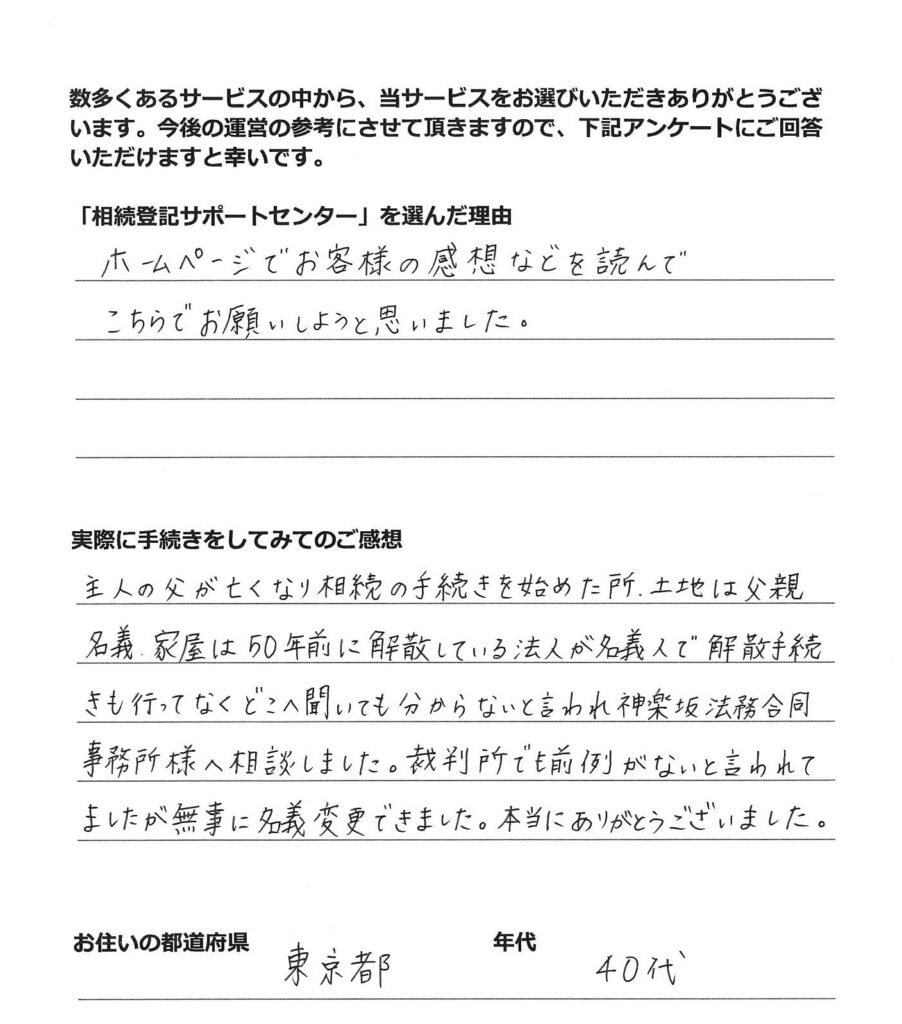 数多くあるサービスの中から、当サービスをお選びいただきありがとうござ
います。今後の運営の参考にさせて頂きますので、下記アンケートにご回答
いただけますと幸いです。
「相続登記サポートセンター」を選んだ理由
ホームページでお客様の感想などを読んで
こちらでお願いしようと思いました。
実際に手続きをしてみてのご感想
主人の父が亡くなり相続の手続きを始めた所、土地は父親
名義、家屋は50年前に解散している法人が名義人で解散手続
きも行ってなくどこへ聞いても分からないと言われ神楽坂法務合同
事務所様へ相談しました。裁判所でも前例がないと言われて
ましたが無事に名義変更できました。本当にありがとうございました。
お住いの都道府県 東京都 年代 40代